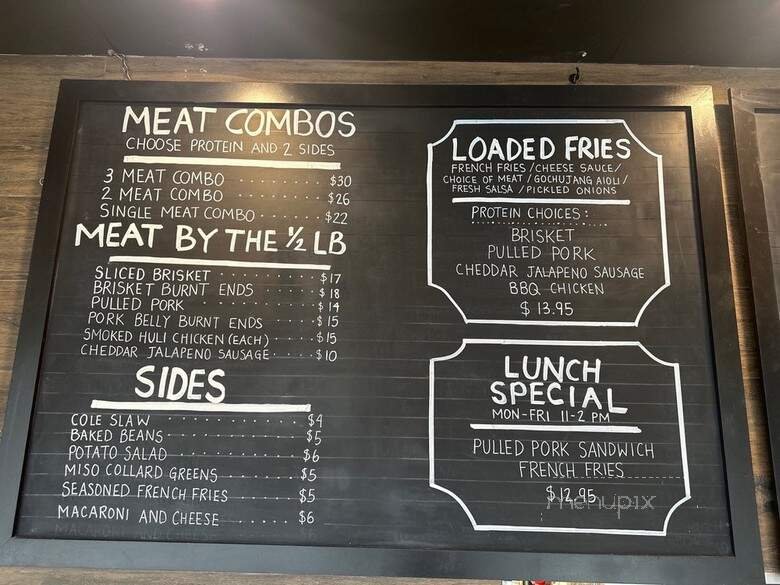 MEAT COMBOS
CHOOSE PROTEIN AND 2 SIDES
3 MEAT COMBO $30
2 MEAT COMBO $26
SINGLE MEAT COMBO $22
MEAT BY THE ½ LB
SLICED BRISKET $17
BRISKET BURNT ENDS $18
PULLED PORK $14
PORK BELLY BURNT ENDS $15
SMOKED HULI CHICKEN (EACH) $15
CHEDDAR JALAPENO SAUSAGE $10
SIDES
COLE SLAW $4
BAKED BEANS $5
POTATO SALAD $6
MISO COLLARD GREENS $5
SEASONED FRENCH FRIES $5
MACARONI AND CHEESE $6
LOADED FRIES
FRENCH FRIES / CHEESE SAUCE /
CHOICE OF MEAT / GOCHUJANG AIOLI /
FRESH SALSA / PICKLED ONIONS
PROTEIN CHOICES:
BRISKET
PULLED PORK
CHEDDAR JALAPENO SAUSAGE
BBQ CHICKEN
$ 13.95
LUNCH
SPECIAL
MON-FRI 11-2 PM
PULLED PORK SANDWICH
FRENCH FRIES
$12.95
menupix